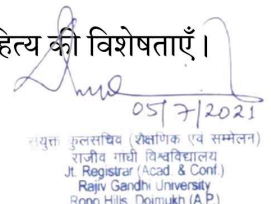 हित्य की विशेषताएँ।
05/7/2021
संयुक्त कुलसचिव (शैक्षणिक एवं सम्मेलन)
राजीव गांधी विश्वविद्यालय
Jt. Registrar (Acad. & Conf.)
Rajiv Gandhi University
Rono Hills, Doimukh (A.P.)